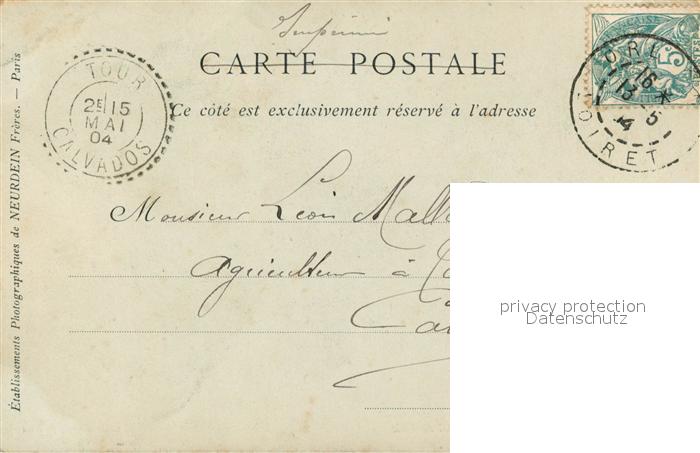 Imprimé
CARTE POSTALE
Ce côté est exclusivement réservé à l'adresse
TOUR
2E 15
MAI
04
CALVADOS
ORL
16
13 5
LOIRET
5
Monsieur Léon
Agriculteur à
Établissements Photographiques de NEURDEIN Frères. — Paris
privacy protection
Datenschutz